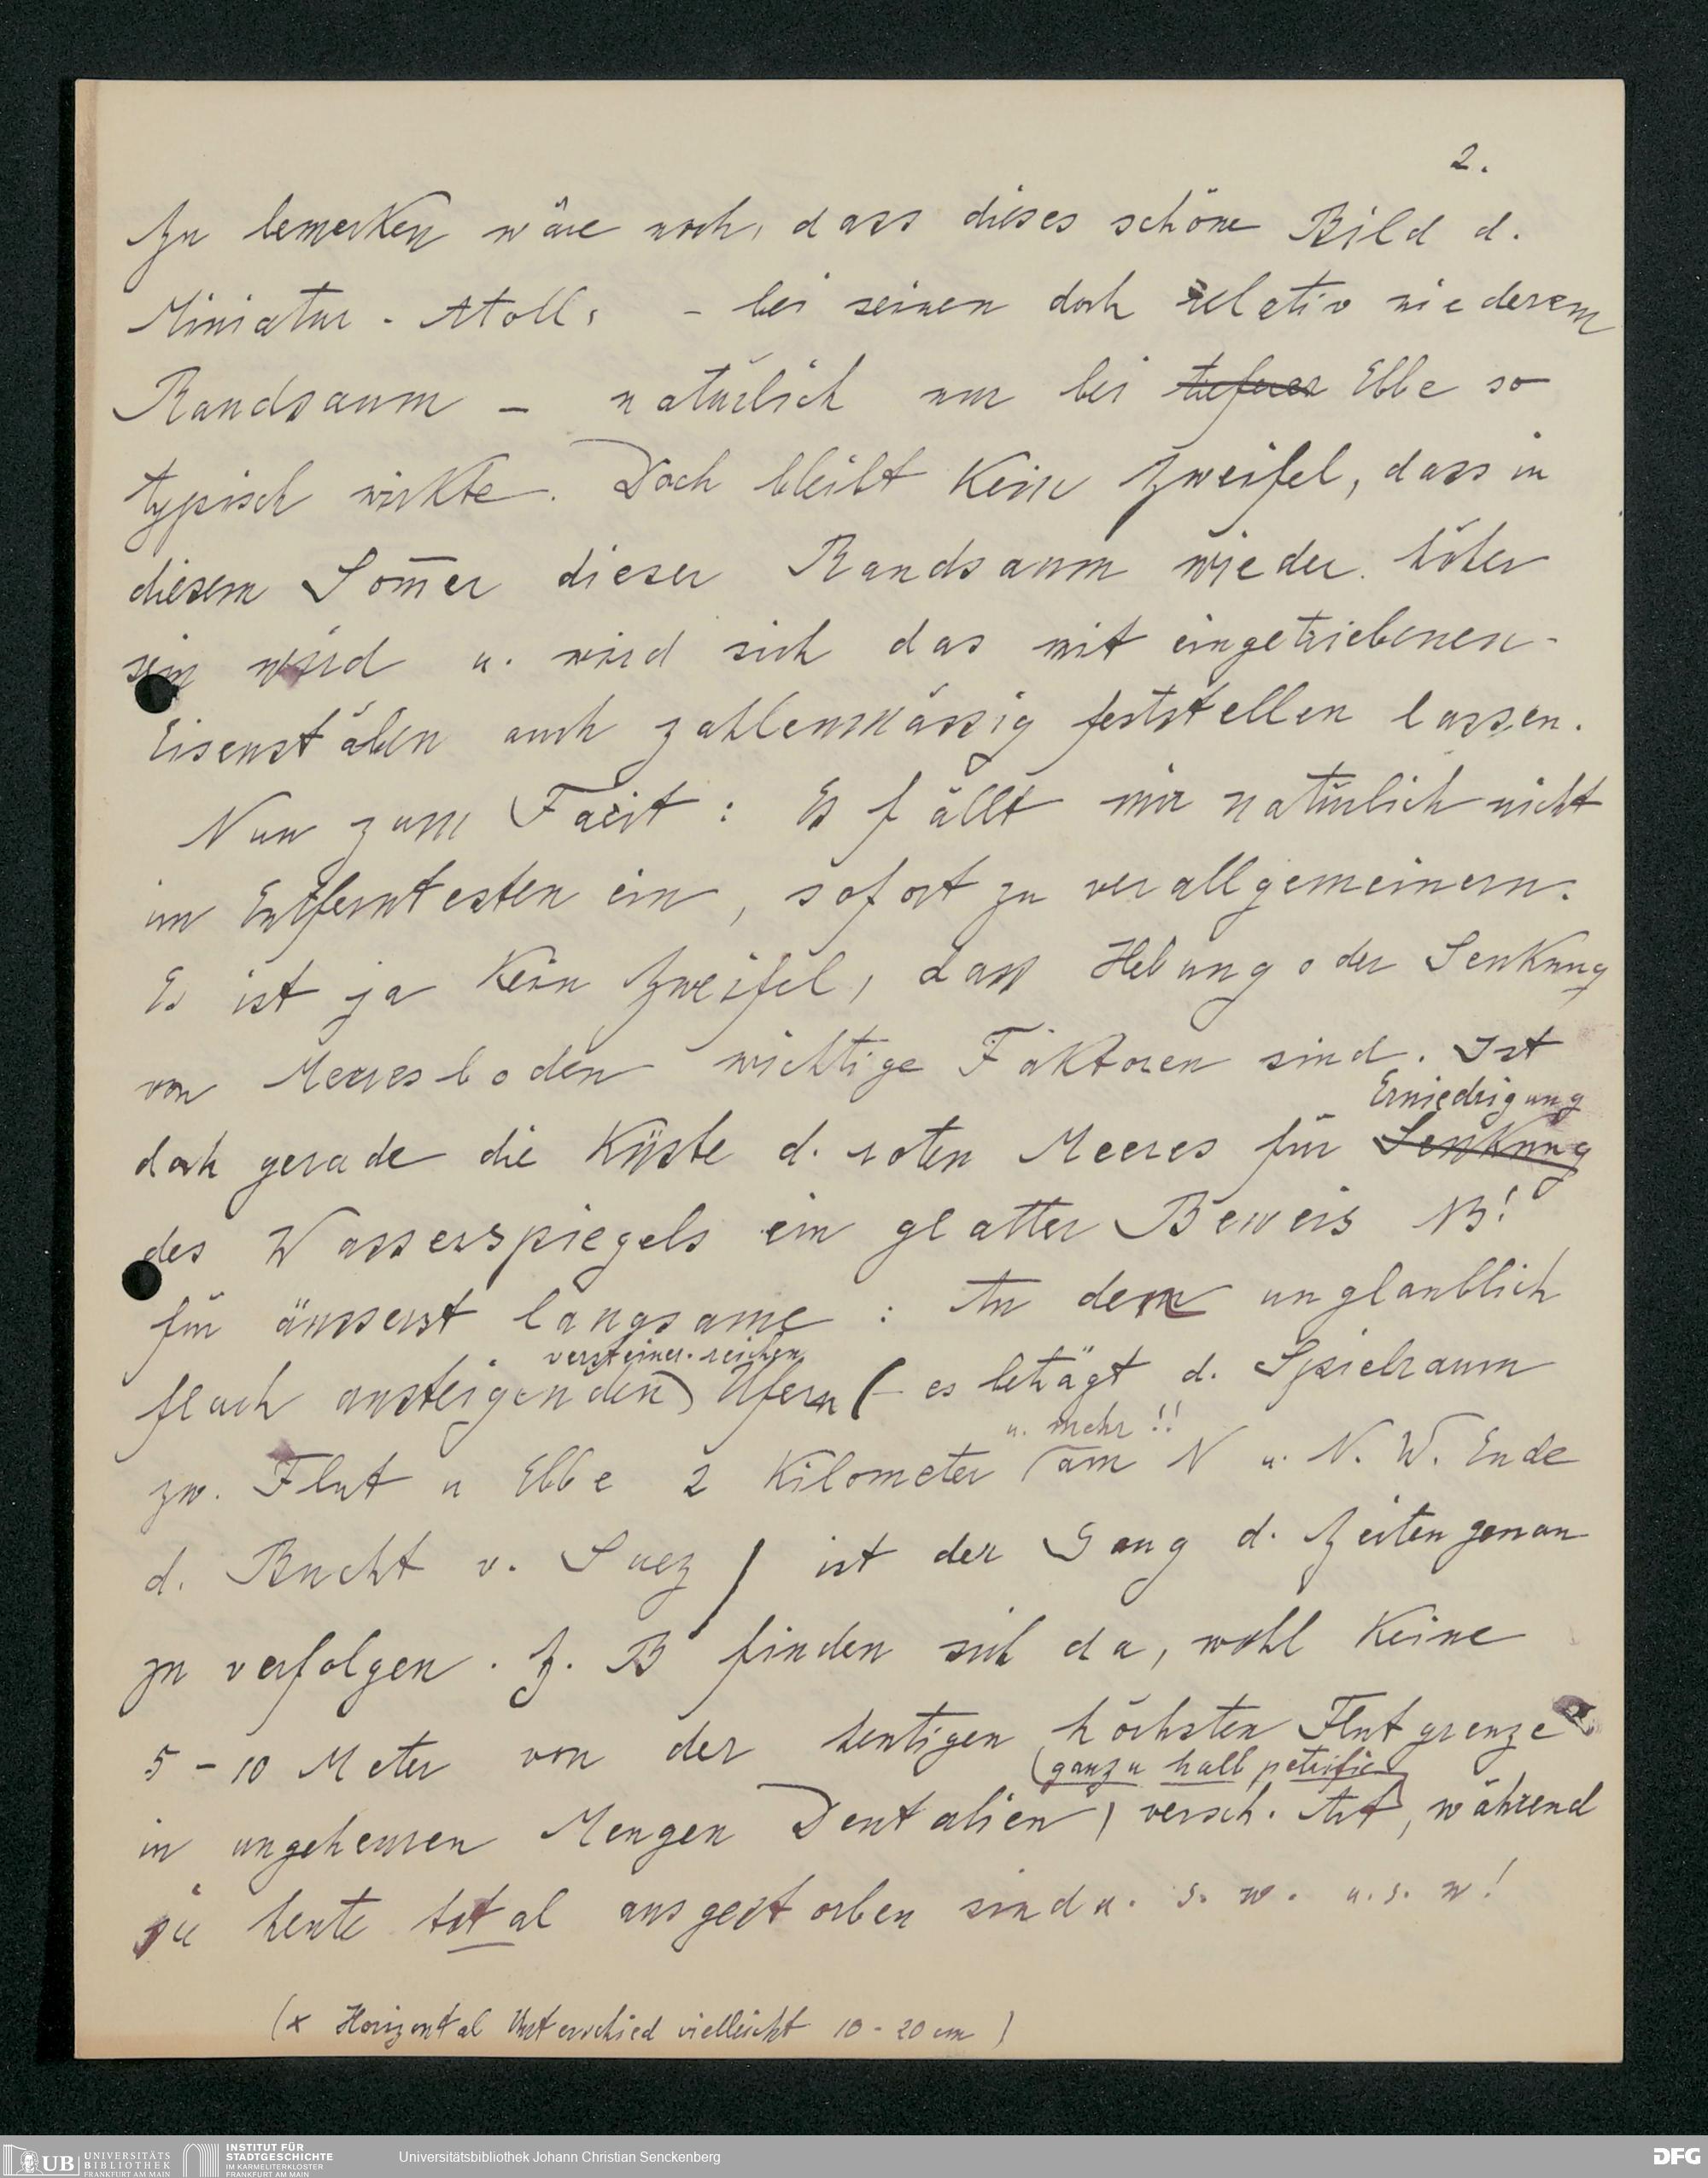 2.
Zu bemerken wäre noch, dass dieses schöne Bild d.
Miniatur-Atolls - bei seinen doch relativ niederem
Randsaum - natürlich nur bei tieferer Ebbe so
typisch wirkte. Doch bleibt kein Zweifel, dass in
diesem Som̄er dieser Randsaum wieder höher
sein wird u. wird sich das mit eingetriebenen
Eisenstäben auch zahlenmässig feststellen lassen.
Nun zum Facit: Es fällt mir natürlich nicht
im Entferntesten ein, sofort zu verallgemeinern.
Es ist ja kein Zweifel, dass Hebung oder Senkung
von Meeresboden wichtige Faktoren sind. Ist
Erniedrigung
doch gerade die Küste d. roten Meeres für Senkung
des Wasserspiegels ein glatter Beweis NB!
für äusserst langsame: An dem unglaublich
versteiner. reichen
flach ansteigenden) Ufern (- es beträgt d. Spielraum
u. mehr!!
zw. Flut u Ebbe 2 Kilometer (am N u. N.W. Ende
d. Bucht v. Suez) ist der Gang d. Zeiten genau
zu verfolgen. Z. B finden sich da, wohl keine
5 - 10 Meter von der heutigen höchsten Flutgrenze
(ganz u halb petrific
in ungeheuren Mengen Dentalien) versch. Art, während
sie heute total ausgestorben sind u. s. w. u. s. w!
(x Horizontal Unterschied vielleicht 10 - 20 cm)
UB UNIVERSITÄTS BIBLIOTHEK FRANKFURT AM MAIN
INSTITUT FÜR STADTGESCHICHTE IM KARMELITERKLOSTER FRANKFURT AM MAIN
Universitätsbibliothek Johann Christian Senckenberg
DFG